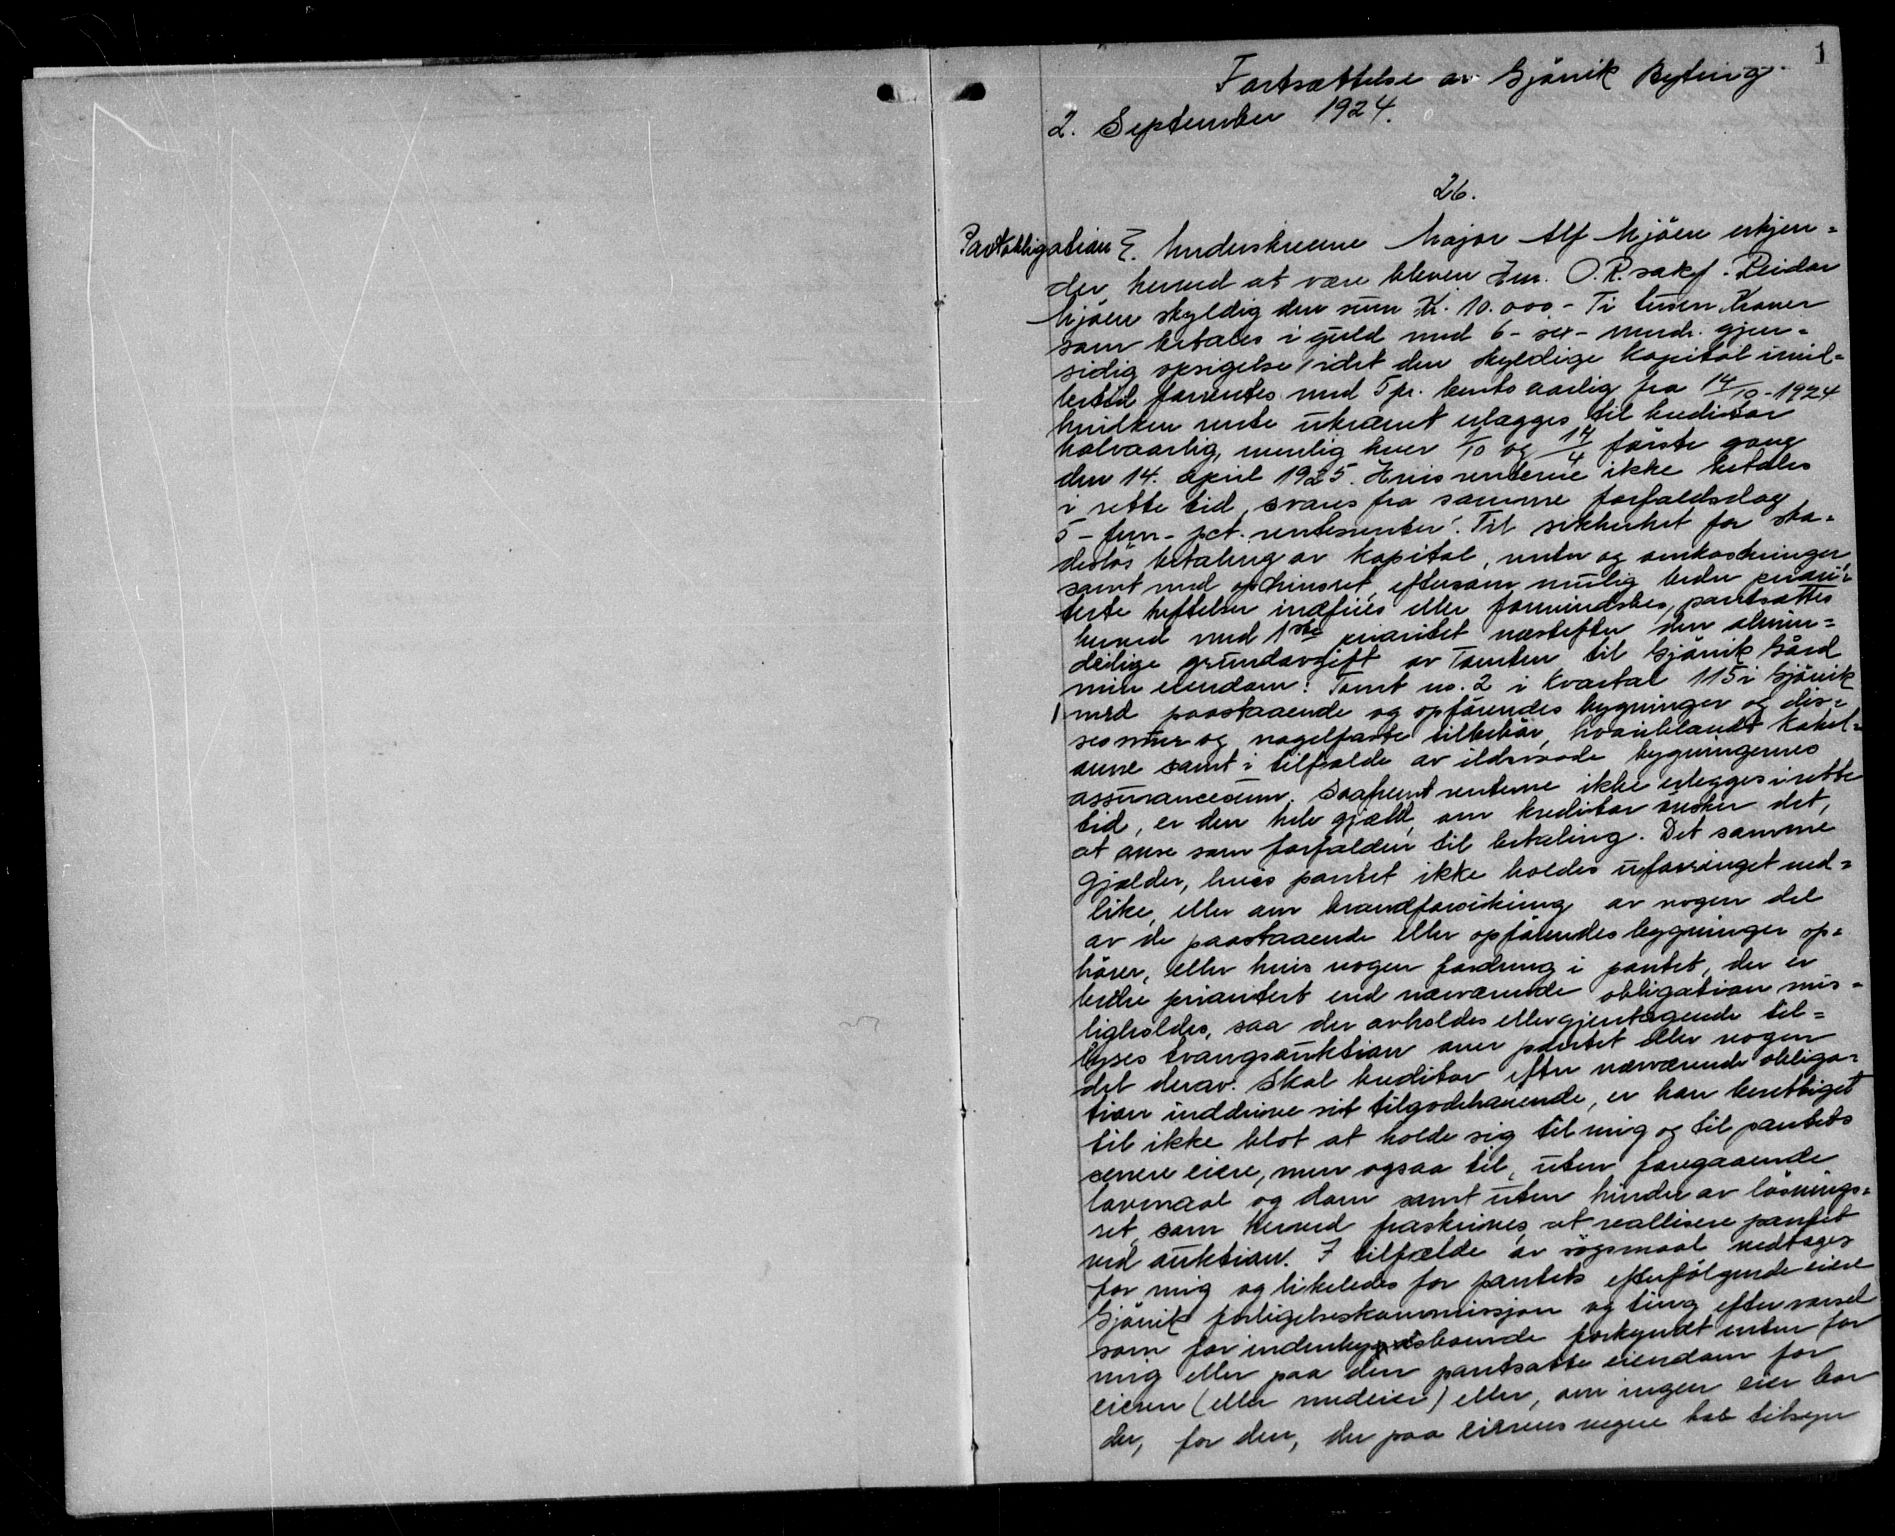 1
Fortsættelse av Gjøvik Byting
2. September 1924.
26.
Pantobligation
Underskrevne Major Alf Mjøen erkjen=
der herved at være bleven Hr. O.R.sakf. Reidar
Mjøen skyldig den sum Kr. 10.000 - Ti tusen Kroner
som betales i guld med 6 - sex - mndr. gjen=
sidig opsigelse, idet den skyldige kapital imid=
lertid forrentes med 5 pr. cento aarlig fra 14/10-1924
hvilken rente ukrævet erlægges til kreditor
halvaarlig, nemlig hver /10 og 14/4 første gang
den 14. april 1925. Hvis renterne ikke betales
i rette tid, svares fra samme forfaldsdag
5 - fem - pct. rentesrenter. Til sikkerhet for ska=
desløs betaling av kapital, renter og omkostninger
samt med oprykningsret, eftersom mulig bedre priori=
terte heftelser indfries eller formindskes, pantsættes
herved med 1ste prioritet næstefter den almin=
delige grundavgift av Tomten til Gjøvik Gård
min eiendom: Tomt no. 2 i Kvartal 115 i Gjøvik
med paastaaende og opførendes bygninger og dis=
ses mur og nagelfaste tilbehør, hvoriblandt kakel=
ovne samt i tilfælde av ildsvaade bygningernes
assurancesum. Saafremt renterne ikke erlegges i rette
tid, er den hele gjæld, om kreditor ønsker det,
at anse som forfalden til betaling. Det samme
gjælder, hvis pantet ikke holdes uforringet ved=
like, eller om brandforsikring av nogen del
av de paastaaende eller opførendes bygninger op=
hører, eller hvis nogen fordring i pantet, der er
bedre prioritert end nærværende obligation mis=
ligholdes, saa der avholdes eller gjentagende til=
lyses tvangsauktion over pantet eller nogen
del derav. Skal kreditor efter nærværende obliga=
tion inddrive sit tilgodehavende, er han berettiget
til ikke blot at holde sig til mig og til pantets
senere eiere, men ogsaa til, uten foregaaende
lovmaal og dom samt uten hinder av løsnings=
ret, som herved fraskrives, at reallisere pantet
ved auktion. I tilfælde av søgsmaal vedtages
for mig og likeledes for pantets efterfølgende eiere
Gjøvik forligelseskommissjon og ting efter varsel
som for indenbygdsboende forkyndt enten for
mig eller paa den pantsatte eiendom for
eieren (eller medeier) eller, om ingen eier bor
der, for den, der paa eierens vegne har tilsyn